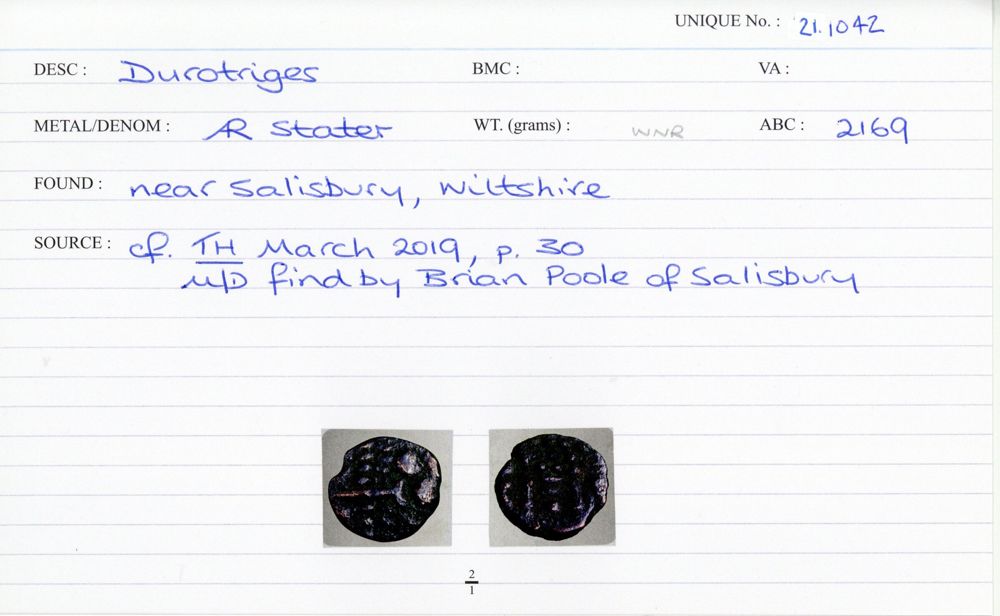 UNIQUE No. : 21.1042
DESC : Durotriges BMC : VA :
METAL/DENOM : AR Stater WT. (grams) : WNR ABC : 2169
FOUND : near Salisbury, Wiltshire
SOURCE : cf. TH March 2019, p. 30
M/D find by Brian Poole of Salisbury
2
1